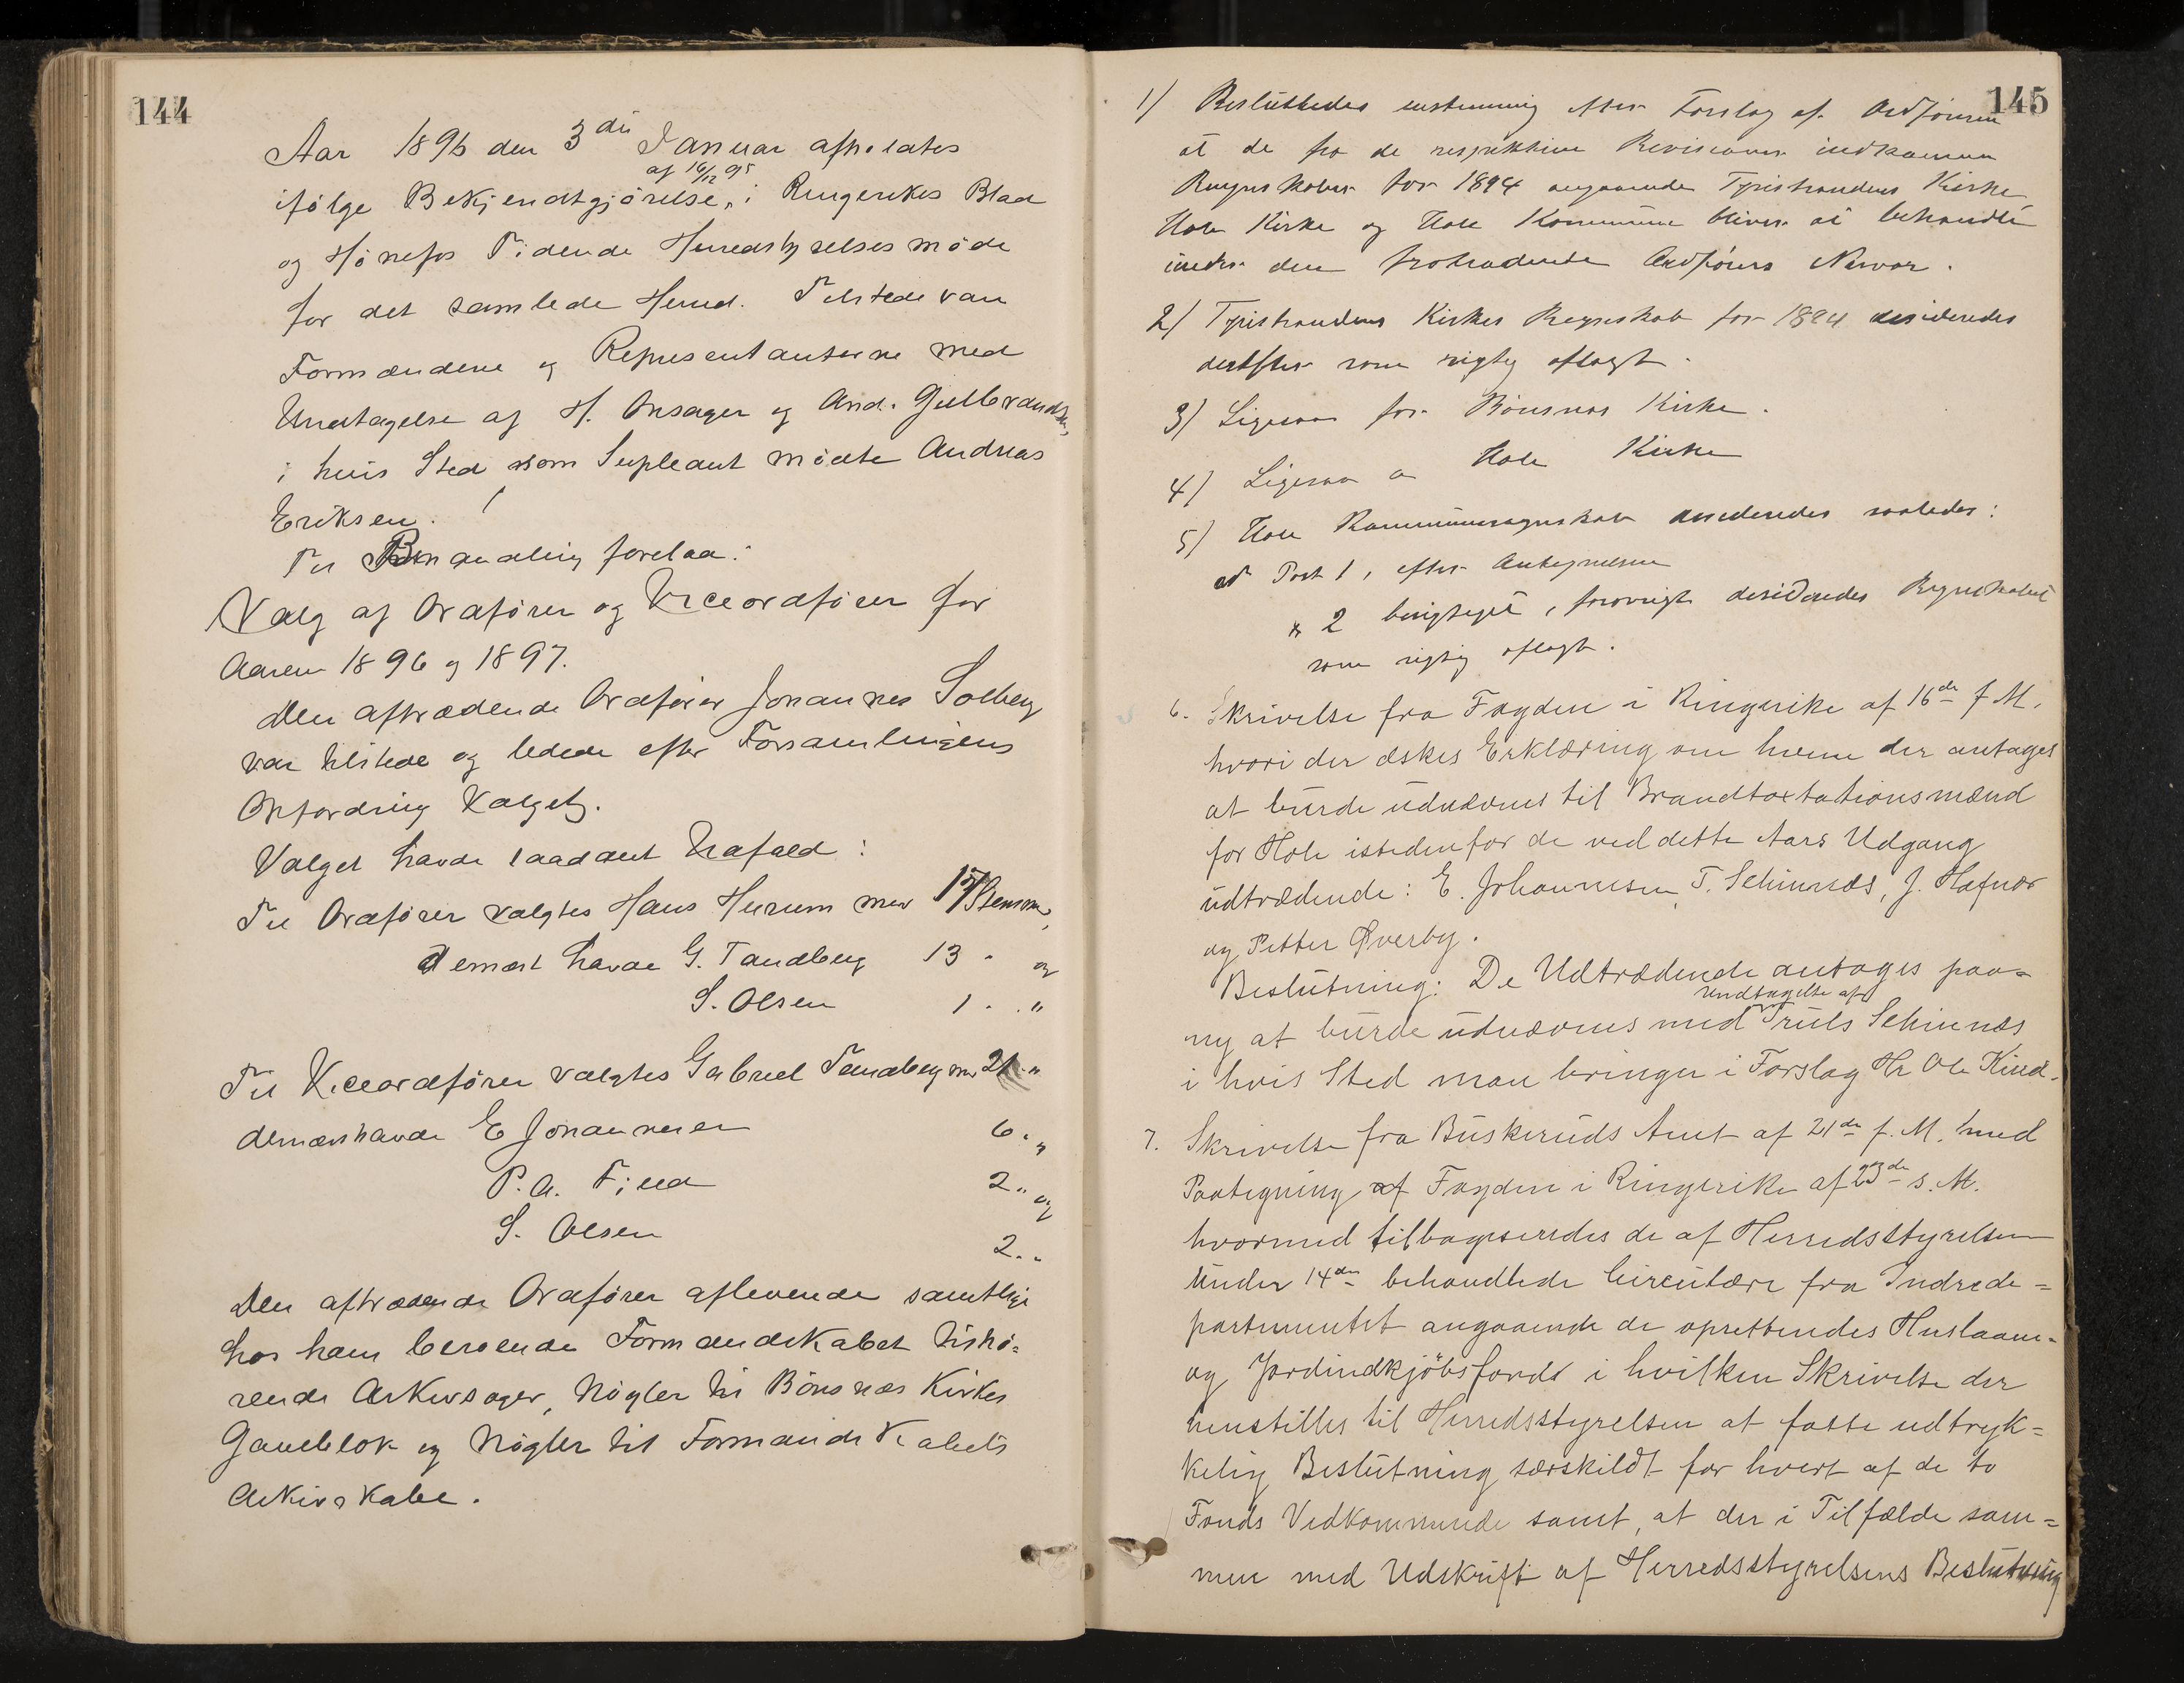 144
Aar 1896 den 3die Januar afholdtes
ifølge Bekjendtgjørelse, af 16/12 95 i Ringerikes Blad
og Hønefos Tidende Herredstyrelsesmøde
for det samlede Herred. Tilstede var
Formændene og Representanterne med
Undtagelse af H. Onsager og And. Gulbrandsen,
i hvis Sted som Supleant mødte Andreas
Eriksen.
Til Behandling forelaa:
Valg af Ordfører og Viceordfører for
Aarene 1896 og 1897.
Den aftrædende Ordfører Johannes Solberg
var tilstede og ledede efter Forsamlingens
Opfordring Valget.
Valget havde saadant Udfald:
Til Ordfører valgtes Hans Hurum med 17 Stemmer,
dernæst havde G. Tandberg 13 " og
S. Olsen 1 . "
Til Viceordfører valgtes Gabriel Tandberg med 21 "
dernæst havde E Johannesen 6 . "
P. A. Fjeld 2 " og
S. Olsen 2 . "
Den aftrædende Ordfører afleverede samtlige
hos ham beroende Formandskabet tilhø=
rende Arkivsager, Nøgler til Bönsnæs Kirkes
Gaveblok og Nøgler til Formandskabets
Arkivskabe.
145
1) Besluttedes enstemmig efter Forslag af Ordføreren
at de fra de respektive Revisorer indkomne
Regnskaber for 1894 angaaende Tyristrandens Kirke
Hole Kirke og Hole Kommune bliver at behandle
under den fratrædende Ordførers Nærvær.
2) Tyristrandens Kirkes Regnskab for 1894 desideredes
derefter som rigtig aflagt.
3) Ligesaa for Bönsnæs Kirke.
4) Ligesaa " Hole Kirke
5) Hole Kommuneregnskab desideredes saaledes:
ad Post 1, efter Antegnelsen
" 2 berigtiget, forøvrigt desideredes Regnskabet
som rigtig aflagt.
6. Skrivelse fra Fogden i Ringerike af 16de f. M.
hvori der æskes Erklæring om hvem der antages
at burde udnævnes til Brandtaxtationsmænd
for Hole istedenfor de ved dette Aars Udgang
udtrædende: E. Johannesen, T. Selinnæs, J. Hafnor
og Petter Øverby.
Beslutning: De Udtrædende antages paa=
ny at burde udnævnes med Undtagelse af Truls Selinnæs
i hvis Sted man bringer i Forslag Hr Ole Kind.
7. Skrivelse fra Buskeruds Amt af 21de f. M. med
Paategning af Fogden i Ringerike af 23de s. M.
hvormed tilbagesendes de af Herredsstyrelsen
under 14de behandlede Circulære fra Indrede=
partementet angaaende de oprettendes Huslaane-
og Jordindkjøbsfonds i hvilken Skrivelse der
henstilles til Herredsstyrelsen at fatte udtryk=
kelig Beslutning særskildt for hvert af de to
Fonds Vedkommende samt, at der i Tilfælde sam=
men med Udskrift af Herredsstyrelsens Beslutning